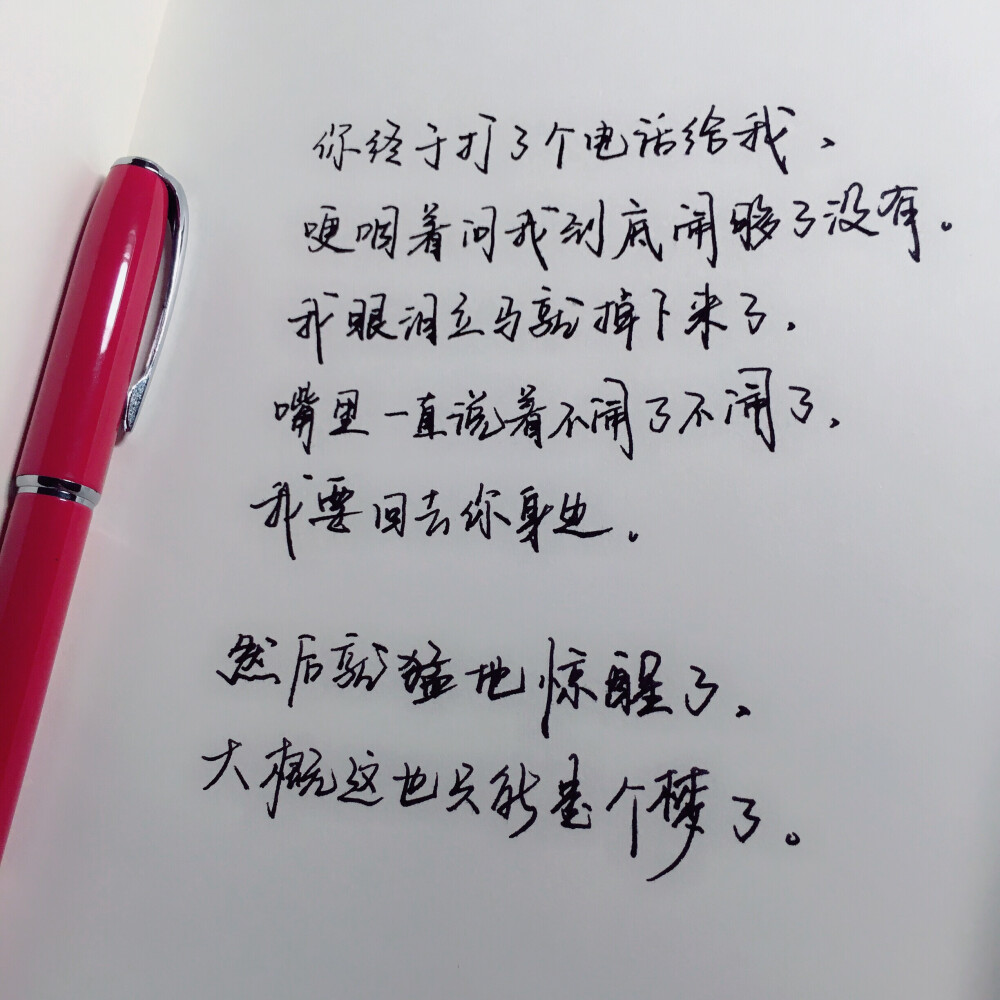 你终于打了个电话给我、
哽咽着问我到底闹够了没有。
我眼泪立马就掉下来了，
嘴里一直说着不闹了不闹了，
我要回去你身边。
然后就猛地惊醒了、
大概这也只能是个梦了。